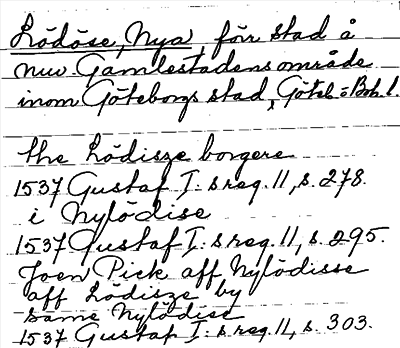 Lödöse, Nya, förr stad å
nuv. Gamlestadens område
inom Göteborgs stad, Göteb. o Boh. l.
the Lödisze borgere
1537 Gustaf I: s reg. 11, s. 278.
i Nylödise
1537 Gustaf I: s reg. 11, s. 295.
Joen Pick aff Nylödisse
aff Lödisze by
samme Nylödise
1537 Gustaf I: s reg. 11, s. 303.